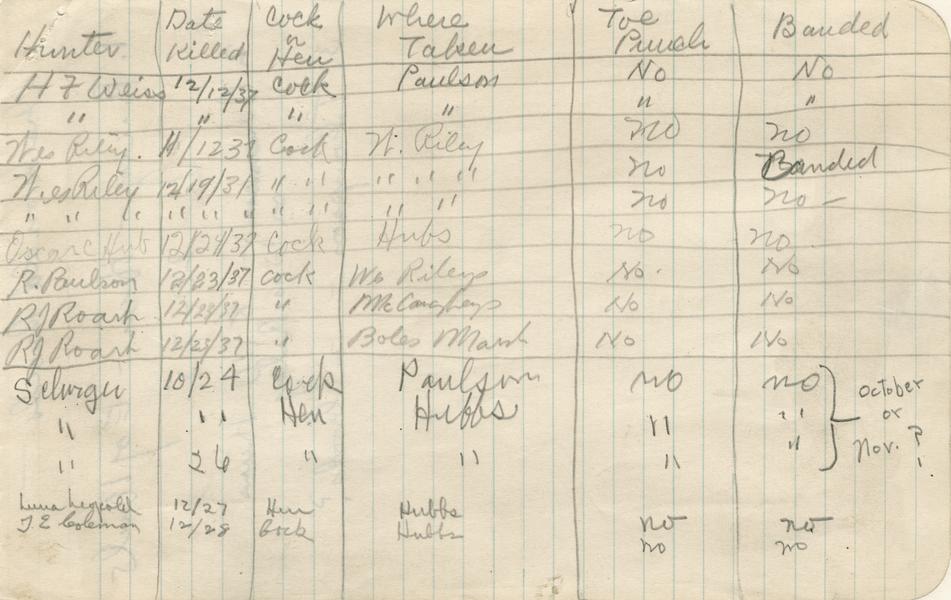 Hunter Date Killed Cock or Hen Where Taken Toe Punch Banded
H F Weiss 12/12/37 Cock Paulson No No
" " " " " "
Wes Riley. 11/1237 Cock W. Riley no no
W.es Riley 12/19/37 " " " " " " no Banded
" " " " " " " " " " " no no –
Oscar C Hub 12/24/37 Cock Hubs no no.
R. Paulson 12/23/37 cock We Rileys No. No
RJ Roark 12/23/37 " McCaugheys No No
RJ Roark 12/25/37 " Boles Marsh No No
10/24 Cock Paulson no no
" " Hen Hubbs " "
" 26 " " " "
October or Nov. ?
12/27 Hen Hubbs no no
J E Coleman 12/28 Cock Hubbs no no